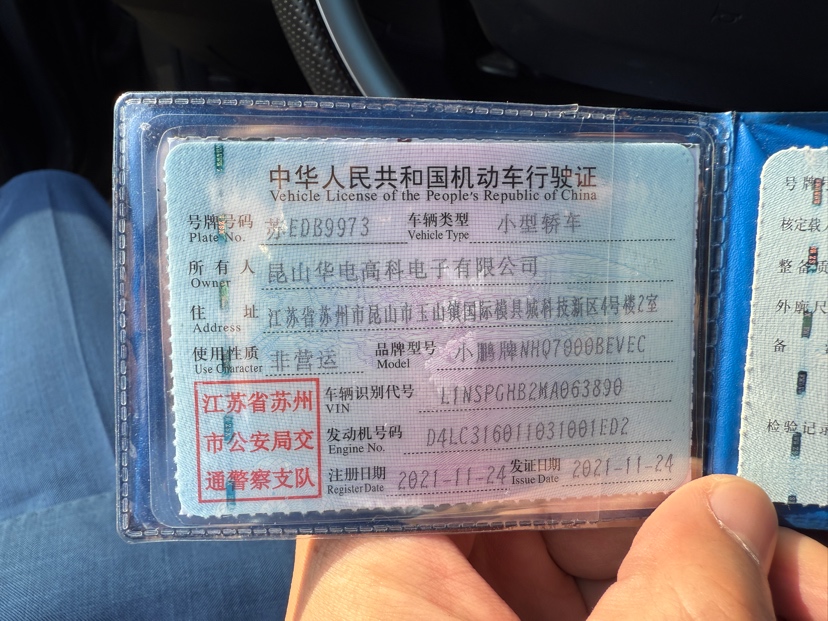 中华人民共和国机动车行驶证
Vehicle License of the People's Republic of China
号牌号码 苏EDB9973 车辆类型 小型轿车
Plate No. Vehicle Type
所有人 昆山华电高科电子有限公司
Owner
住址 江苏省苏州市昆山市玉山镇国际模具城科技新区4号楼2室
Address
使用性质 非营运 品牌型号 小鹏牌NHQ7000BEVEC
Use Character Model
江苏省苏州
市公安局交
通警察支队
车辆识别代号 L1NSPGHB2MA063890
VIN
发动机号码 D4LC316011031001ED2
Engine No.
注册日期 2021-11-24 发证日期 2021-11-24
Register Date Issue Date
号牌
核定载
整备质
外廓尺
备
检验记录